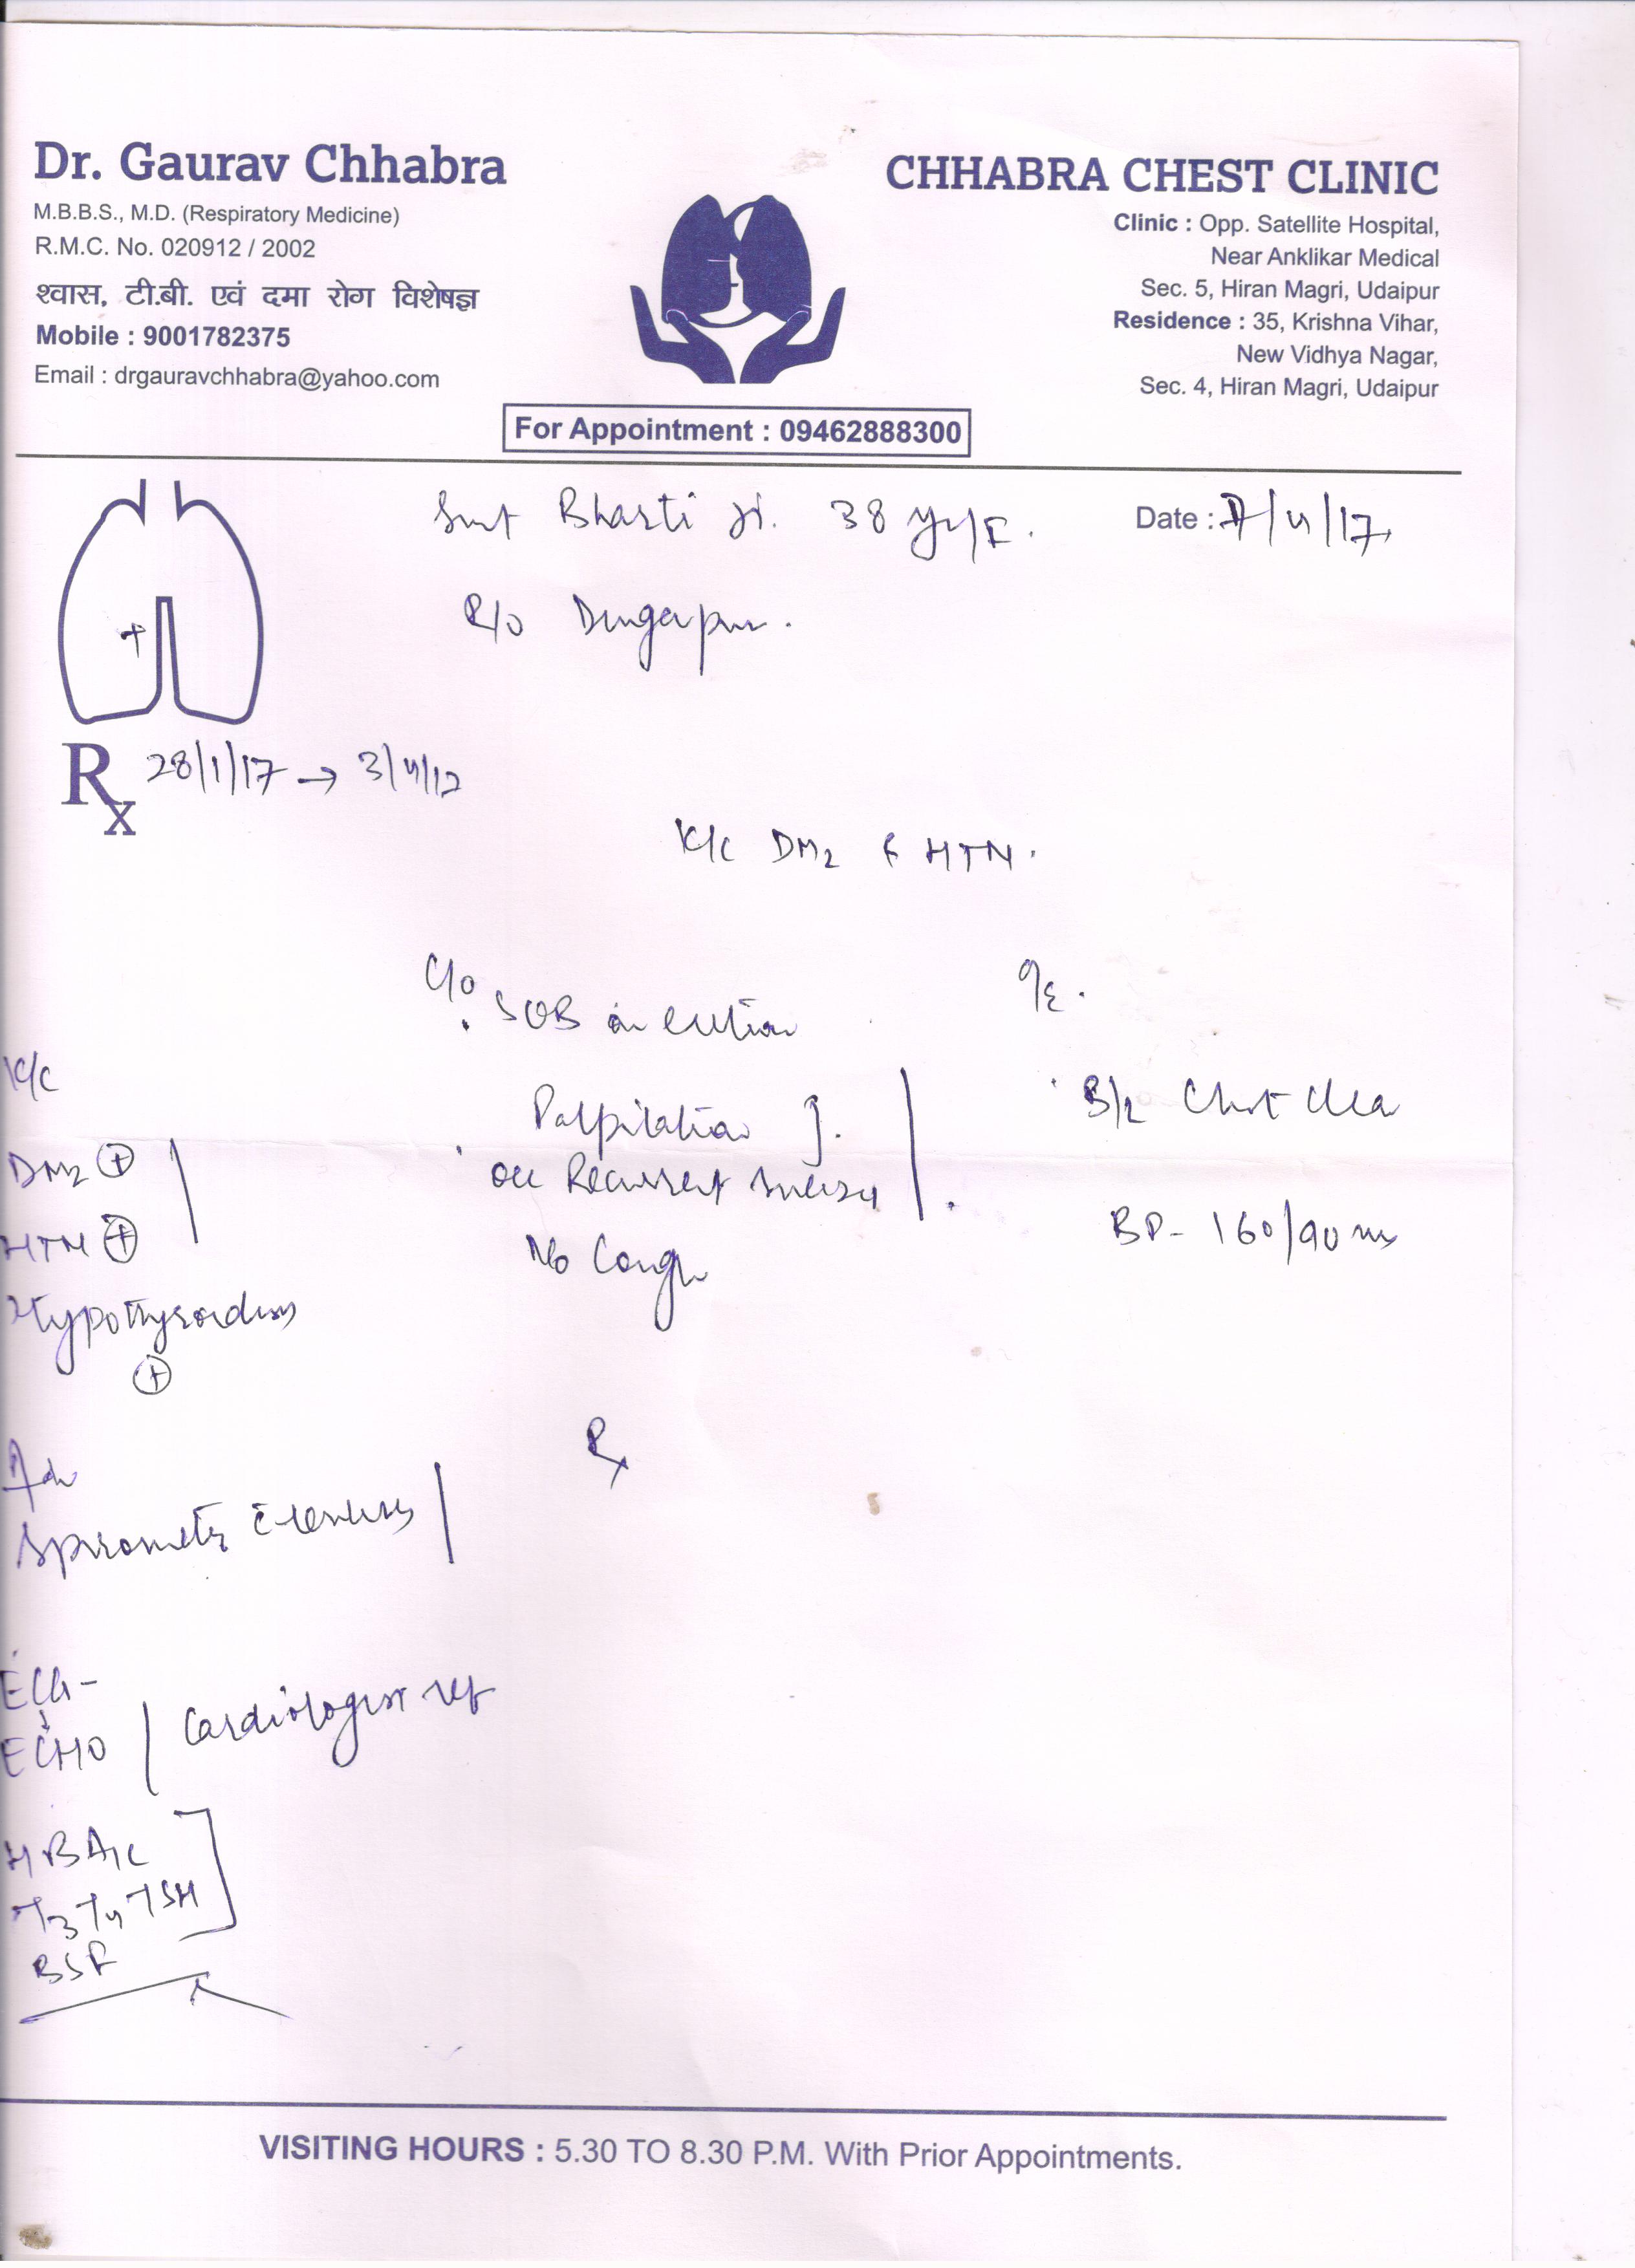 Dr. Gaurav Chhabra
M.B.B.S., M.D. (Respiratory Medicine)
R.M.C. No. 020912 / 2002
श्वास, टी.बी. एवं दमा रोग विशेषज्ञ
Mobile : 9001782375
Email : drgauravchhabra@yahoo.com
CHHABRA CHEST CLINIC
Clinic : Opp. Satellite Hospital,
Near Anklikar Medical
Sec. 5, Hiran Magri, Udaipur
Residence : 35, Krishna Vihar,
New Vidhya Nagar,
Sec. 4, Hiran Magri, Udaipur
For Appointment : 09462888300
Smt Bharti Ji. 38 yr/F.
Date : 7/4/17
R/o Dungarpur.
Rx 28/1/17 → 3/4/17
K/c DM2 & HTN.
C/o
SOB on exertion
Palpitation
occ Recurrent sneezing
No Cough
O/E.
B/L Chest clear
BP- 160/90
K/c
DM2 +
HTN +
Hypothyroidism
+
Rx
Adv
Spirometry
ECG-
ECHO
Cardiologist ref
HBA1C
T3 T4 TSH
BSF
VISITING HOURS : 5.30 TO 8.30 P.M. With Prior Appointments.